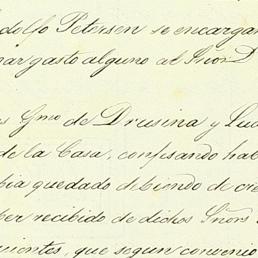 dolfo Petersen se encargan
nar gasto alguno al Señor D
es Gmo de Drusina y Lud
de la Casa, confesando hab
bia quedado debiendo de cre
ber recibido de dichos Señores
uientes, que segun convenio